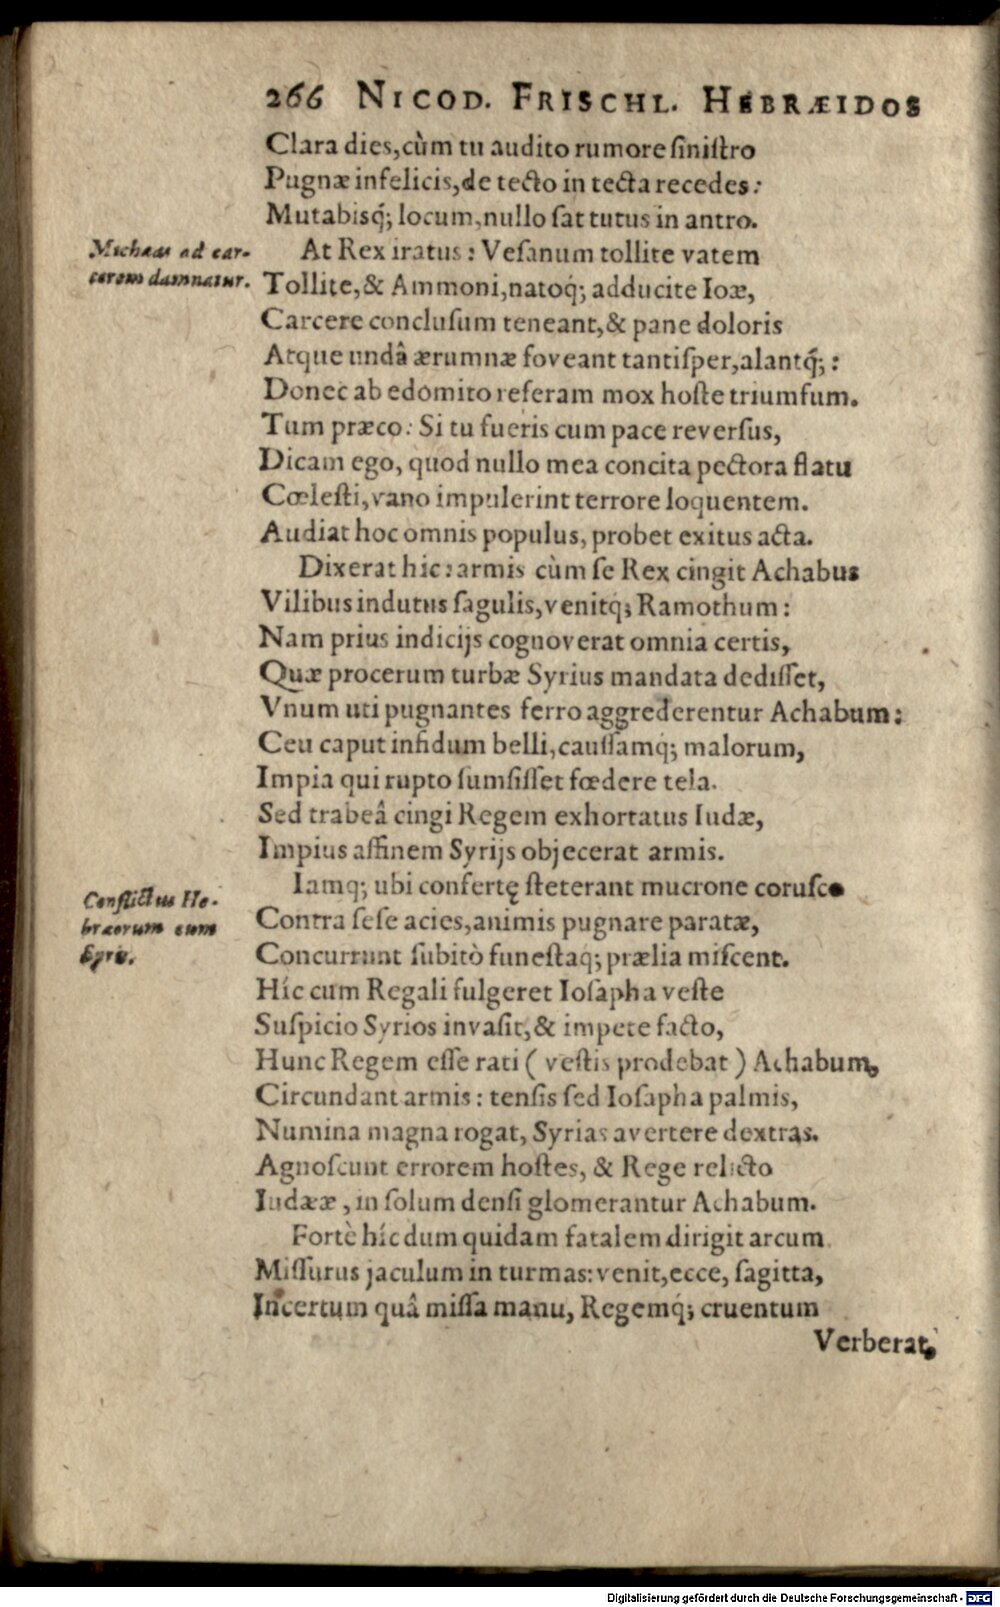 266 NICOD. FRISCHL. HEBRÆIDOS
Clara dies, cùm tu audito rumore ſiniſtro
Pugnæ infelicis, de tecto in tecta recedes:
Mutabisq́; locum, nullo ſat tutus in antro.
Michæas ad car-
cerem damnatur.
At Rex iratus: Veſanum tollite vatem
Tollite, & Ammoni, natoq́; adducite Ioæ,
Carcere concluſum teneant, & pane doloris
Atque undâ ærumnæ foveant tantiſper, alantq́;:
Donec ab edomito referam mox hoſte triumfum.
Tum præco: Si tu fueris cum pace reverſus,
Dicam ego, quod nullo mea concita pectora flatu
Cœleſti, vano impulerint terrore loquentem.
Audiat hoc omnis populus, probet exitus acta.
Dixerat hic: armis cùm ſe Rex cingit Achabus
Vilibus indutus ſagulis, venitq; Ramothum:
Nam prius indicijs cognoverat omnia certis,
Quæ procerum turbæ Syrius mandata dediſſet,
Vnum uti pugnantes ferro aggrederentur Achabum:
Ceu caput infidum belli, cauſſamq́; malorum,
Impia qui rupto ſumſiſſet fœdere tela.
Sed trabeâ cingi Regem exhortatus Iudæ,
Impius affinem Syrijs objecerat armis.
Conflictus He-
bræorum cum
Syris.
Iamq; ubi confertę ſteterant mucrone coruſco
Contra ſeſe acies, animis pugnare paratæ,
Concurrunt ſubitò funeſtaq; prælia miſcent.
Híc cum Regali fulgeret Ioſapha veſte
Suſpicio Syrios invaſit, & impete facto,
Hunc Regem eſſe rati ( veſtis prodebat ) Achabum,
Circundant armis: tenſis ſed Ioſapha palmis,
Numina magna rogat, Syrias avertere dextras.
Agnoſcunt errorem hoſtes, & Rege relicto
Iudææ, in ſolum denſi glomerantur Achabum.
Fortè híc dum quidam fatalem dirigit arcum
Miſſurus jaculum in turmas: venit, ecce, ſagitta,
Incertum quâ miſſa manu, Regemq́; cruentum
Verberat,
Digitalisierung gefördert durch die Deutsche Forschungsgemeinschaft - DFG